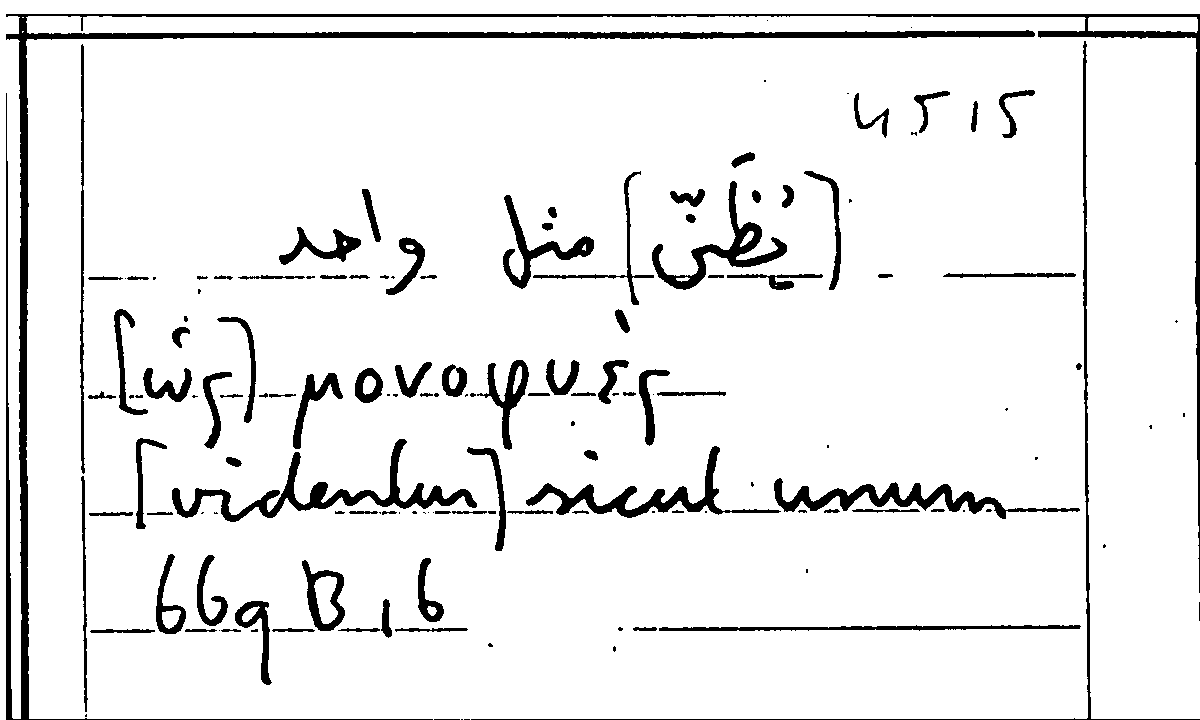 4515
[يُظَنّ] مثل واحد
[ὡς] μονοφυές
[videntur] sicut unum
669 B 16